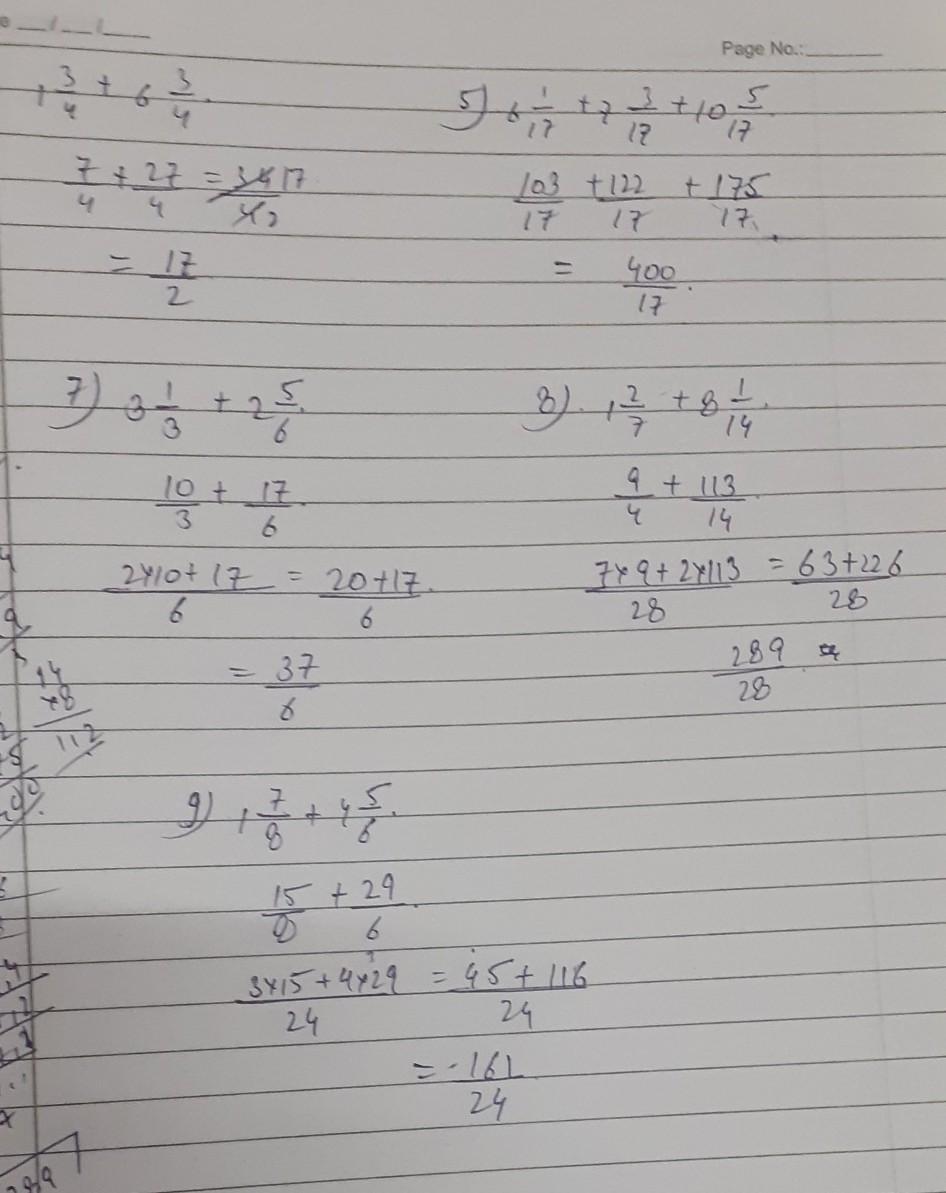 Page No.:
1 3/4 + 6 3/4.
7/4 + 27/4 = 34 17/4 2
= 17/2
5) 6 1/17 + 7 3/17 + 10 5/17
103/17 + 122/17 + 175/17
= 400/17.
7) 3 1/3 + 2 5/6.
10/3 + 17/6
2×10+17/6 = 20+17/6
= 37/6
8). 1 2/7 + 8 1/14.
9/4 + 113/14
7×9+2×113/28 = 63+226/28
289/28
14
×8
112
9) 1 7/8 + 4 5/6.
15/8 + 29/6
3×15+4×29/24 = 45+116/24
= 161/24